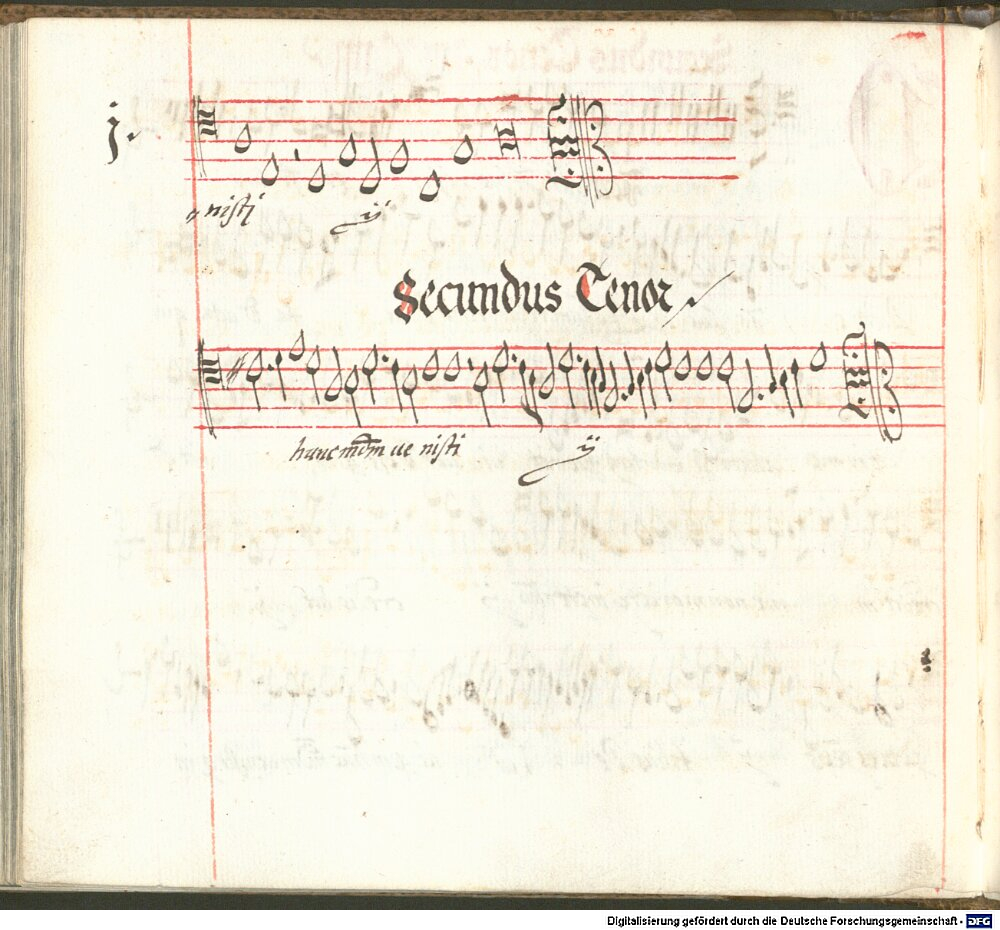 j.
nistj ij
Secundus Tenor
hunc mdm ue nisti ij
Digitalisierung gefördert durch die Deutsche Forschungsgemeinschaft - DFG